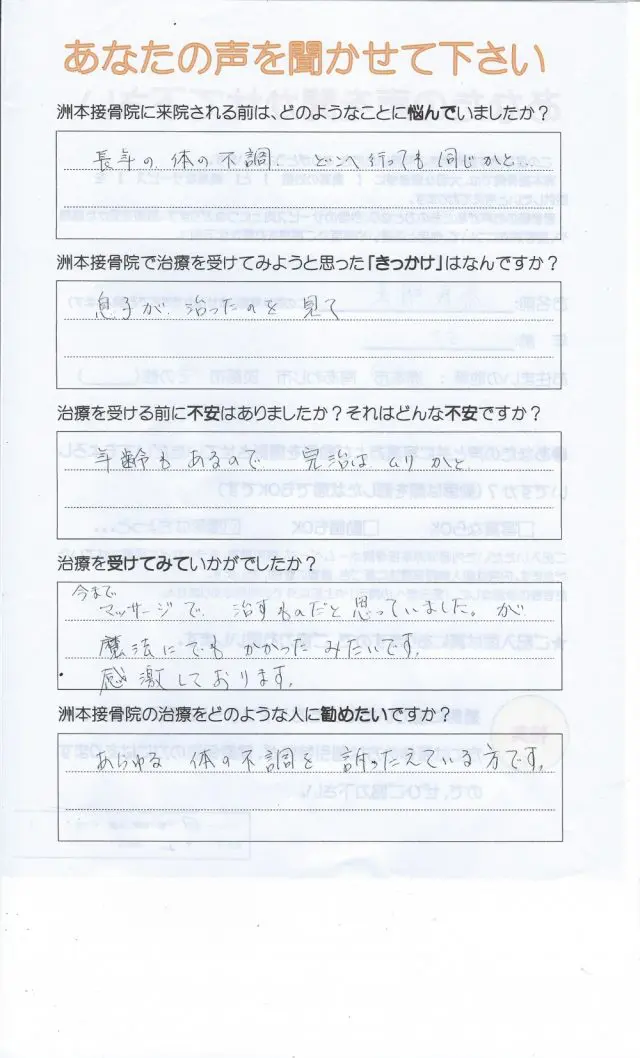 あなたの声を聞かせて下さい
洲本接骨院に来院される前は、どのようなことに悩んでいましたか?
長年の 体の不調 どこへ行っても同じかと…
洲本接骨院で治療を受けてみようと思った「きっかけ」はなんですか?
息子が 治ったのを 見て
治療を受ける前に不安はありましたか?それはどんな不安ですか?
年齢も あるので 完治は ムリ かと
治療を受けてみていかがでしたか?
今まで
マッサージで 治すものだと思っていました。が
魔法にでも かかった みたいです。
感激しております。
洲本接骨院の治療をどのような人に勧めたいですか?
あらゆる 体の不調を 訴ったえている方です。